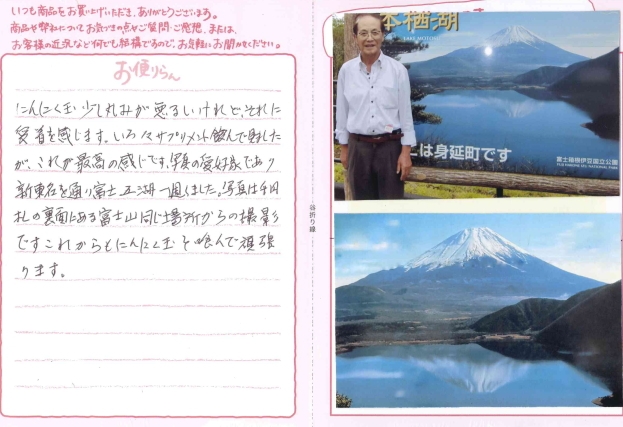 いつも商品をお買い上げいただき、ありがとうございます。
商品や弊社についてお気づきの点やご質問・ご発想、または、
お客様の近況など何でも結構ですので、お気軽にお聞かせください。
お便りらん
にんにく玉少し丸みが悪るいけれど、それに
愛着を感じます。いろ々サプリメント飲んで来ました
が、これが最高の感じです、写真の愛好家であり
新東名を通り富士五湖一週しました。写真は千円
札の裏面にある富士山同じ場所からの撮影
ですこれからもにんにく玉を喰んで頑張
ります。
谷折り線
本栖湖
LAKE MOTOSU
は身延町です
富士箱根伊豆国立公園
FUJI HAKONE IZU NATIONAL PARK